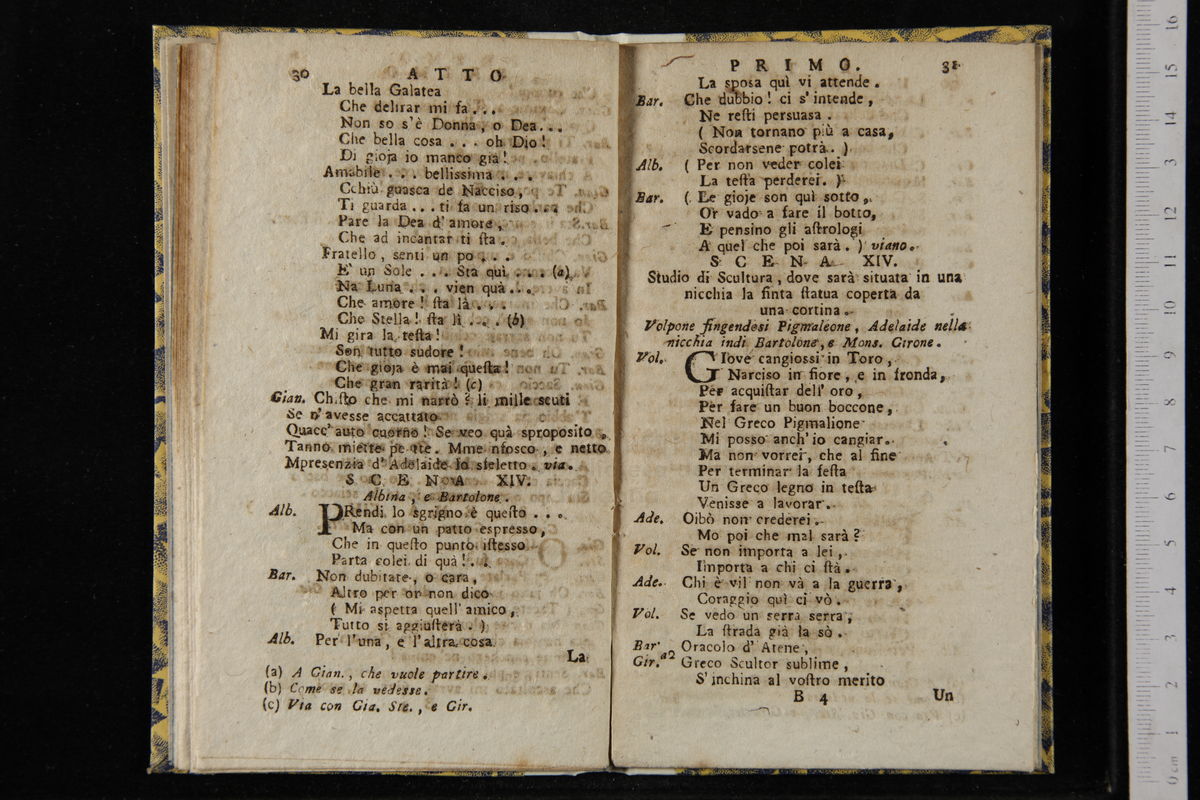 30 ATTO
La bella Galatea
Che delirar mi fa...
Non so s'è Donna, o Dea...
Che bella cosa... oh Dio!
Di gioja io manco già!
Amabile... bellissima...
Cchiù guasca de Nacciso,
Ti guarda...ti fa un riso...
Pare la Dea d'amore,
Che ad incantar ti sta.
Fratello, senti un po...
E' un Sole... Sta quì... (a)
Na Luna... vien quà...
Che amore! sta là...
Che Stella! sta lì... (b)
Mi gira la testa!
Son tutto sudore!
Che gioja è mai questa!
Che gran rarità! (c)
Gian. Chisto che mi narrò? li mille scuti
Se n'avesse accattato
Quacc'auto cuorno! Se veo quà sproposito,
Tanno miette pe tte. Mme nfosco, e netto
Mpresenzia d'Adelaide lo sfeletto. via.
SCENA XIV.
Albina, e Bartolone.
Alb. PRendi lo sgrigno è questo...
Ma con un patto espresso,
Che in questo punto istesso
Parta colei di quà!..
Bar. Non dubitate, o cara,
Altro per or non dico
( Mi aspetta quell'amico,
Tutto si aggiusterà. )
Alb. Per l'una, e l'altra cosa
La
(a) A Gian., che vuole partire.
(b) Come se la vedesse.
(c) Via con Gia. Ste., e Gir.
PRIMO. 31
La sposa quì vi attende.
Bar. Che dubbio! ci s'intende,
Ne resti persuasa.
( Non tornano più a casa,
Scordarsene potrà. )
Alb. ( Per non veder colei
La testa perderei. )
Bar. ( Le gioje son quì sotto,
Or vado a fare il botto,
E pensino gli astrologi
A quel che poi sarà. ) viano.
SCENA XIV.
Studio di Scultura, dove sarà situata in una
nicchia la finta statua coperta da
una cortina.
Volpone fingendosi Pigmaleone, Adelaide nella
nicchia indi Bartolone, e Mons. Girone.
Vol. GIove cangiossi in Toro,
Narciso in fiore, e in fronda,
Per acquistar dell'oro,
Per fare un buon boccone,
Nel Greco Pigmalione
Mi posso anch'io cangiar.
Ma non vorrei, che al fine
Per terminar la festa
Un Greco legno in testa
Venisse a lavorar.
Ade. Oibò non crederei.
Mo poi che mal sarà?
Vol. Se non importa a lei,
Importa a chi ci stà.
Ade. Chi è vil non và a la guerra,
Coraggio quì ci vò.
Vol. Se vedo un serra serra,
La strada già la sò.
Bar. Oracolo d'Atene,
Gir. a2 Greco Scultor sublime,
S'inchina al vostro merito
B 4 Un